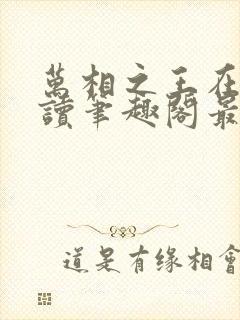 萬相之王在
讀筆趣閣最
道是有缘相會